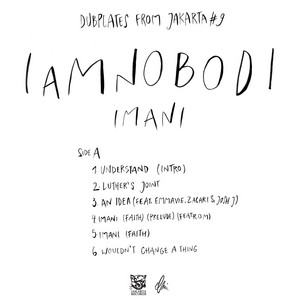 DUBPLATES FROM JAKARTA #9
IAMNOBODI
IMANI
SIDE A
1 UNDERSTAND (INTRO)
2 LUTHER'S JOINT
3 AN IDEA (FEAT. EMMAVIE, ZACARI & JOSH J)
4 IMANI (FAITH) (PRELUDE) (FEAT. ROM)
5 IMANI (FAITH)
6 WOULDN'T CHANGE A THING